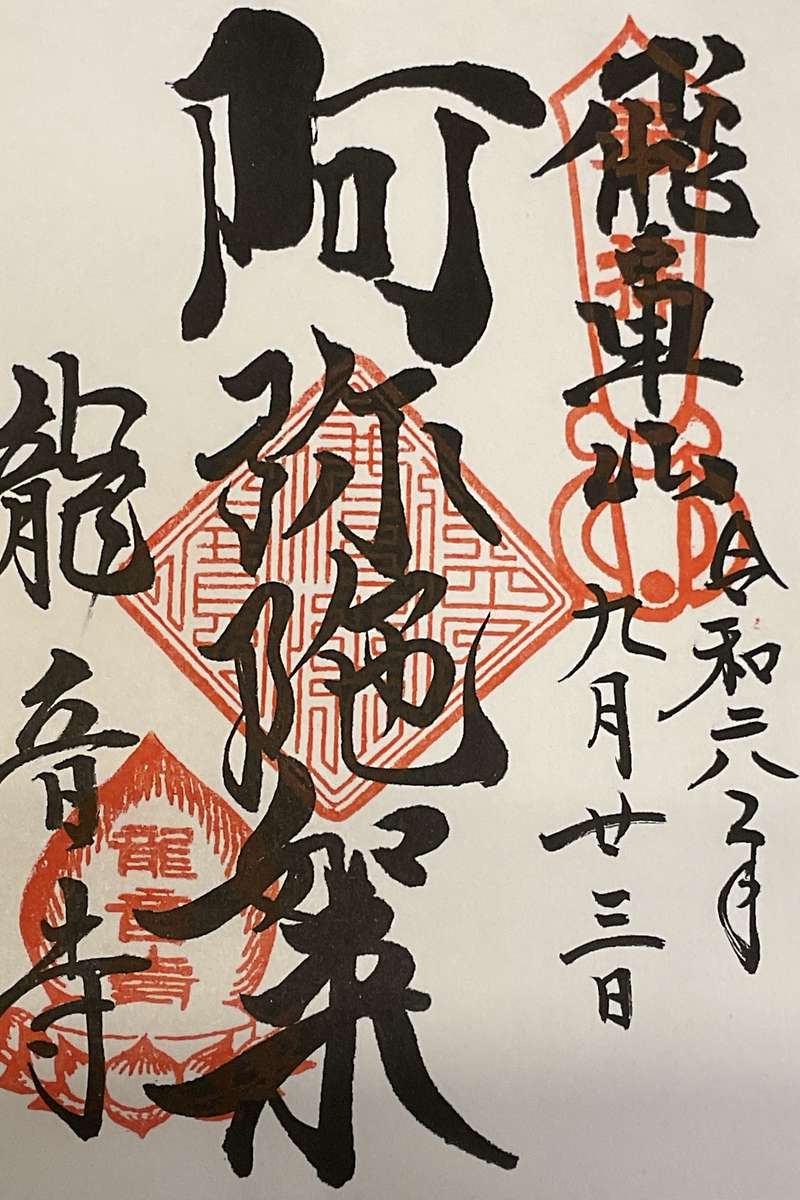 奉拝
飛車山
令和元年
九月廿三日
阿弥陀如来
龍音寺
龍音寺